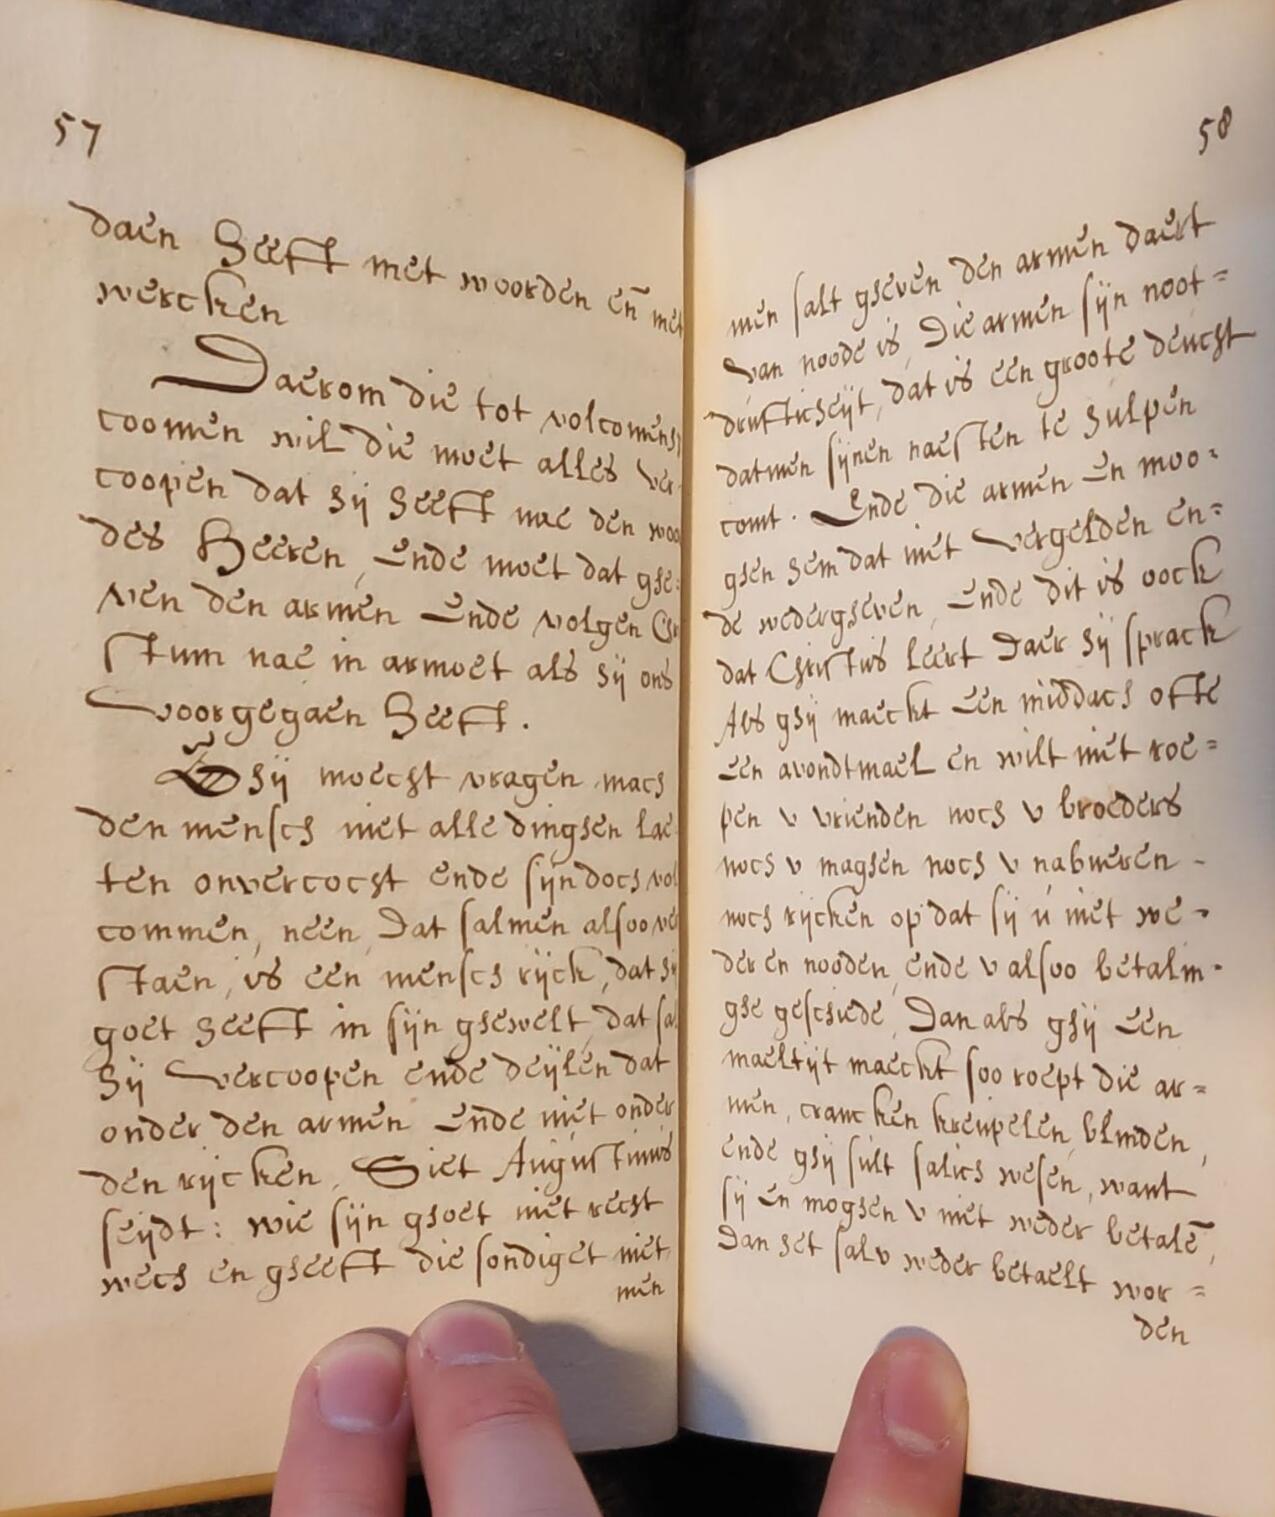 57
daen heeft met woorden eñ met
wercken
Daerom die tot volcomenh
coomen wil die moet alles ver-
coopen dat hij heeft nae den woo
des Heeren, ende moet dat ghe-
ven den armen ende volgen Chr
stum nae in armoet als hij ons
voorgegaen heeft.
Ghij moecht vragen mach
den mensch niet alle dinghen lae
ten onvercocht ende sijn doch vol
commen, neen, Dat salmen alsoo ve
staen, is een mensch rijck, dat hij
goet heeft in sijn ghewelt, dat sal
hij vercoopen ende deijlen dat
onder den armen ende niet onder
den rijcken, Siet Augustinus
seijdt: wie sijn ghoet niet recht
wech en gheeft die sondiget niet
men
58
men salt gheven den armen daert
van noode is, Die armen sijn noot=
druftichejt, dat is een groote deucht
datmen sijnen naesten te hulpen
comt. Ende die armen en moo=
ghen hem dat niet vergelden en=
de wedergheven, ende dit is oock
dat Christus leert Daer hij sprack
Als ghij maeckt een middach ofte
een avondtmael en wilt niet roe=
pen v vrienden noch v broeders
noch v maghen noch v nabueren -
noch rijcken op dat sij ú niet we-
deren nooden, ende v alsoo betalin-
ghe geschiede, Dan als ghij een
maeltijt maeckt soo roept die ar=
men, crancken kreupelen, blinden,
ende ghij sult salich wesen, want
sij en moghen v niet weder betalē,
Dan het sal v weder betaelt wor=
den